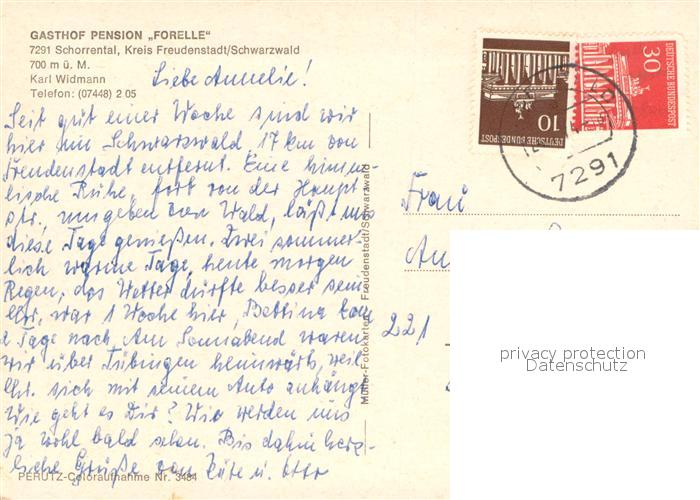 GASTHOF PENSION „FORELLE"
7291 Schorrental, Kreis Freudenstadt/Schwarzwald
700 m ü. M.
Karl Widmann
Telefon: (07448) 2 05
Liebe Annelie!
Seit gut einer Woche sind wir
hier im Schwarzwald, 17 km von
Freudenstadt entfernt. Eine himm-
lische Ruhe, fort von der Haupt
str., umgeben von Wald, läßt uns
diese Tage genießen. Zwei sommer-
lich warme Tage, heute morgen
Regen, das Wetter dürfte besser sein
Chr. war 1 Woche hier, Bettina kam
Tage nach. Am Sonnabend waren
wir über Tübingen heimwärts, weil
Chr. sich mit seinem Auto anhängt
Wie geht es Dir? Wir werden uns
ja wohl bald sehen. Bis dahin herz-
liche Grüße von Käte u. Otto
PERUTZ-Coloraufnahme Nr. 3484
Müller-Fotokarten, Freudenstadt/Schwarzwald
10
DEUTSCHE BUNDESPOST
30
DEUTSCHE BUNDESPOST
7291
Frau
221
privacy protection
Datenschutz